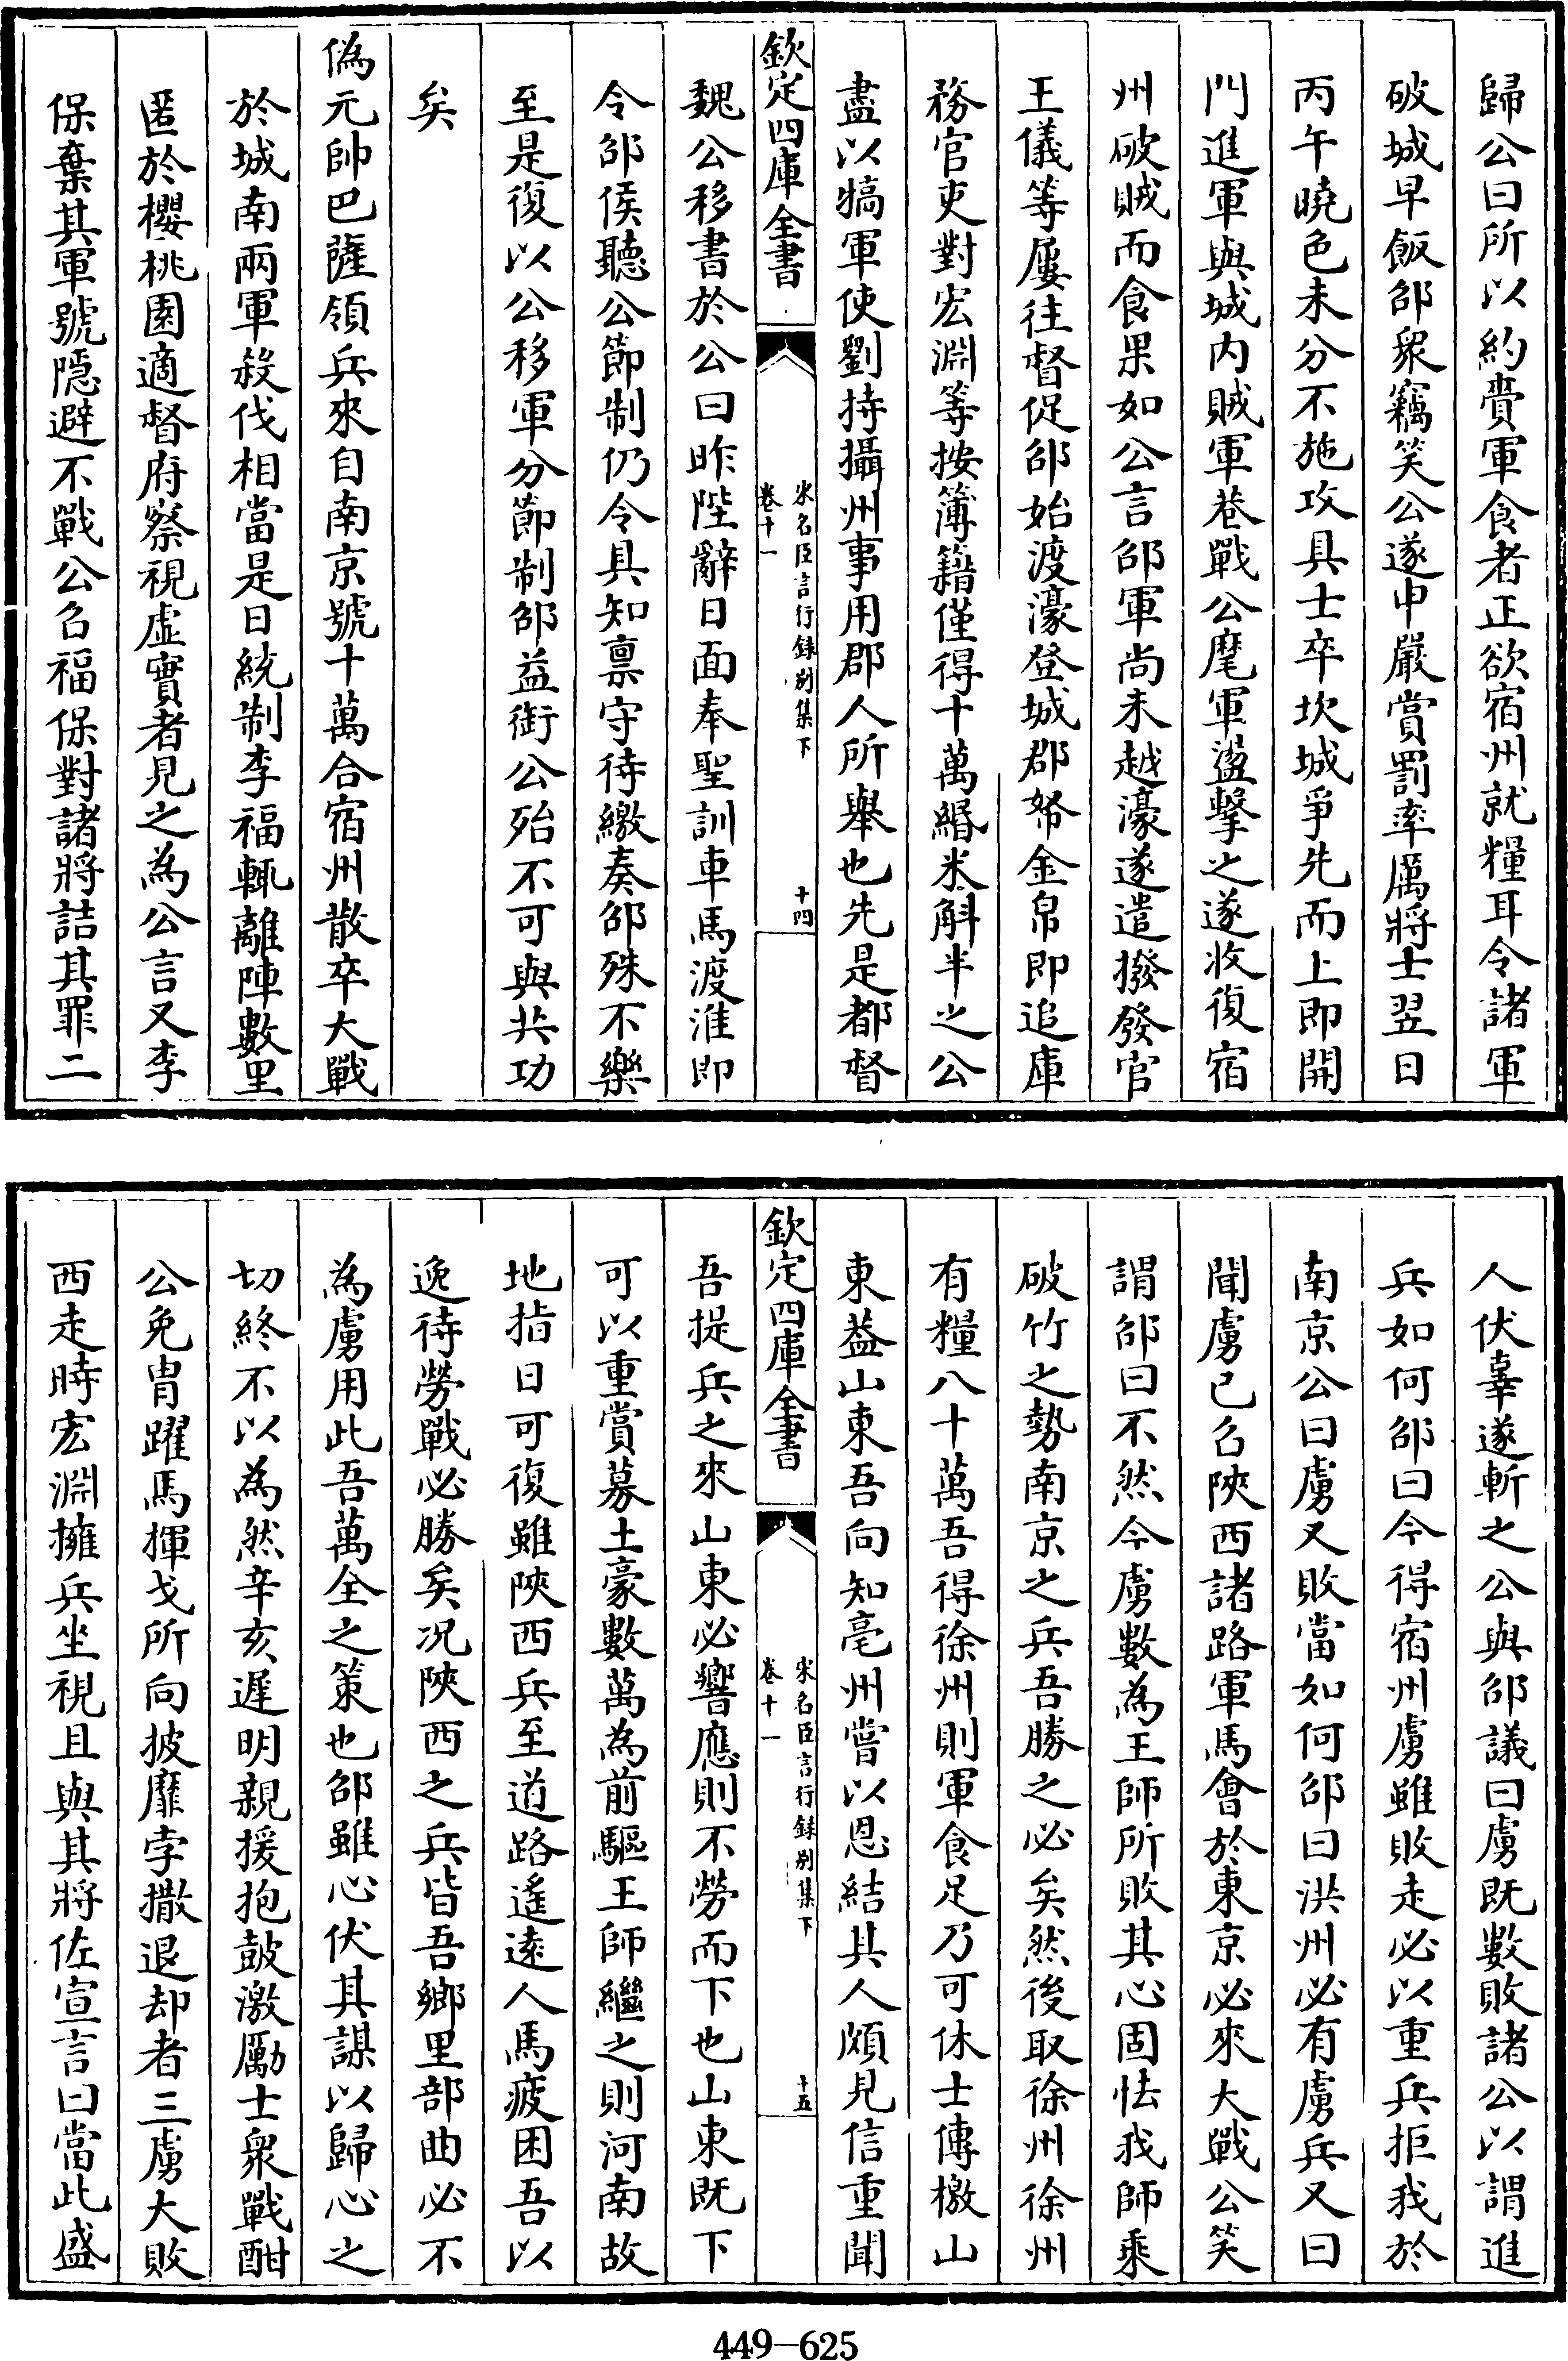 歸公曰所以約賫軍食者正欲宿州就糧耳令諸軍
破城早飯邵衆竊笑公遂申嚴賞罰率厲將士翌日
丙午曉色未分不施攻具士卒坎城爭先而上即開
門進軍與城内賊軍巷戰公麾軍盪擊之遂收復宿
州破賊而食果如公言邵軍尚未越濠遂遣撥發官
王儀等屢往督促邵始渡濠登城郡帑金帛即追庫
務官吏對宏淵等按簿籍僅得十萬緡米斛半之公
盡以犒軍使劉持攝州事用郡人所舉也先是都督
欽定四庫全書
宋名臣言行録别集下
卷十一
十四
魏公移書於公曰昨陛辭日面奉聖訓車馬渡淮即
令邵侯聽公節制仍令具知禀守待繳奏邵殊不樂
至是復以公移軍分節制邵益銜公殆不可與共功
矣
偽元帥巴薩領兵來自南京號十萬合宿州散卒大戰
於城南兩軍殺伐相當是日統制李福輒離陣數里
匿於櫻桃園適督府察視虛實者見之為公言又李
保棄其軍號隠避不戰公召福保對諸將詰其罪二
人伏辜遂斬之公與邵議曰虜既數敗諸公以謂進
兵如何邵曰今得宿州虜雖敗走必以重兵拒我於
南京公曰虜又敗當如何邵曰洪州必有虜兵又曰
聞虜已召陜西諸路軍馬會於東京必來大戰公笑
謂邵曰不然今虜數為王師所敗其心固怯我師乘
破竹之勢南京之兵吾勝之必矣然後取徐州徐州
有糧八十萬吾得徐州則軍食足乃可休士傳檄山
東益山東吾向知亳州嘗以恩結其人頗見信重聞
欽定四庫全書
宋名臣言行録别集下
卷十一
十五
吾提兵之來山東必響應則不勞而下也山東既下
可以重賞募土豪數萬為前驅王師繼之則河南故
地指日可復雖陜西兵至道路遙遠人馬疲困吾以
逸待勞戰必勝矣况陜西之兵皆吾鄉里部曲必不
為虜用此吾萬全之策也邵雖心伏其謀以歸心之
切終不以為然辛亥遲明親援抱鼓激勵士衆戰酣
公免胄躍馬揮戈所向披靡孛撒退却者三虜大敗
西走時宏淵擁兵坐視且與其將佐宣言曰當此盛
449-625